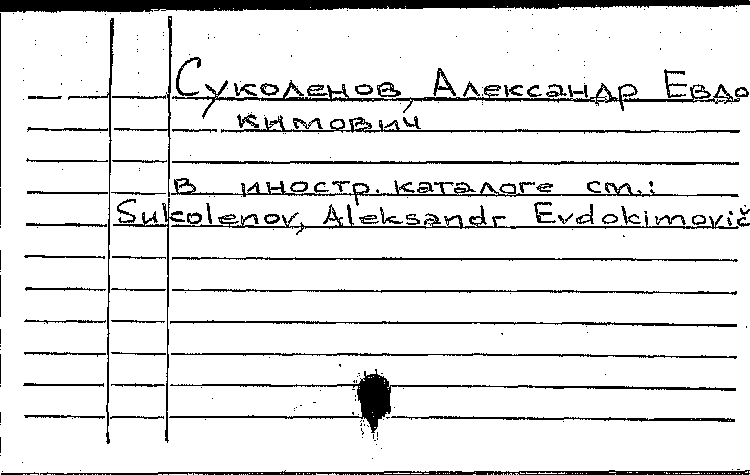 Суколенов, Александр Евдо
кимович
в иностр. каталоге см.:
Sukolenov, Aleksandr Evdokimovič